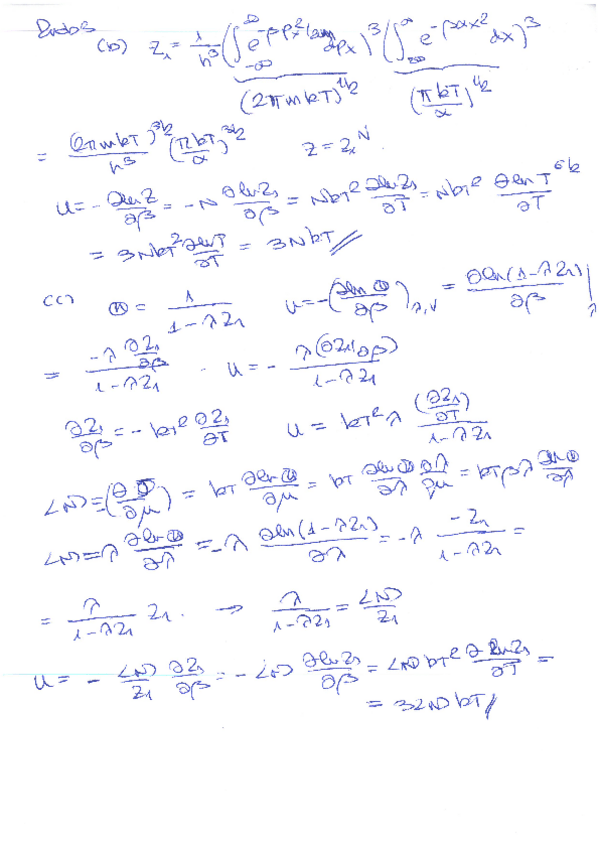 Prob 3
(b) Z₁ = 1/h³ (∫_{-∞}^{∞} e^{-βpₓ²/2m} dpₓ)³ (∫_{-∞}^{∞} e^{-βαx²} dx)³
(2πmkT)^{1/2} (πkT/α)^{1/2}
= (2πmkT)^{3/2}/h³ (πkT/α)^{3/2} Z = Z₁^N
U = -∂lnZ/∂β = -N ∂lnZ₁/∂β = NkT² ∂lnZ₁/∂T = NkT² ∂lnT^{6/2}/∂T
= 3NkT² ∂lnT/∂T = 3NkT //
(c) Ⓗ = 1/(1-λZ₁) U = -(∂lnⒽ/∂β)_{λ,V} = ∂ln(1-λZ₁)/∂β|_λ
= -λ ∂Z₁/∂β / (1-λZ₁) . U = - λ(∂Z₁/∂β)/(1-λZ₁)
∂Z₁/∂β = -kT² ∂Z₁/∂T U = kT²λ (∂Z₁/∂T)/(1-λZ₁)
<N> = (∂ /∂μ) = kT ∂lnⒽ/∂μ = kT ∂lnⒽ/∂λ ∂λ/∂μ = kTβλ ∂lnⒽ/∂λ
<N> = λ ∂lnⒽ/∂λ = -λ ∂ln(1-λZ₁)/∂λ = -λ -Z₁/(1-λZ₁) =
= λ/(1-λZ₁) Z₁. → λ/(1-λZ₁) = <N>/Z₁
U = - <N>/Z₁ ∂Z₁/∂β = - <N> ∂lnZ₁/∂β = <N>kT² ∂lnZ₁/∂T =
= 3<N>kT //